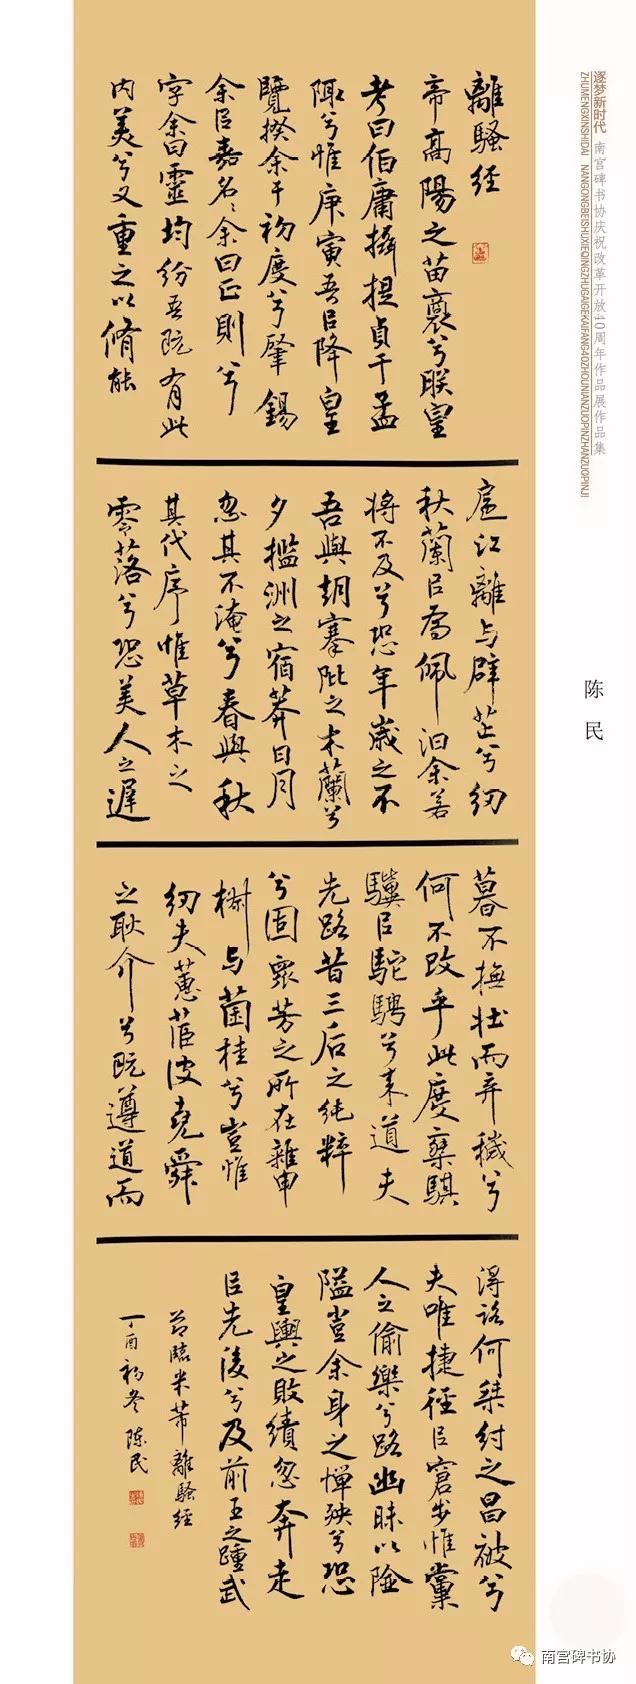 逐梦新时代 南宫碑书协庆祝改革开放40周年作品展作品集
ZHUMENGXINSHIDAI NANGONGBEISHUXIEQINGZHUGAIGEKAIFANG40ZHOUNIANZUOPINZHANZUOPINJI
陈民
離騷經
帝高陽之苗裔兮朕皇
考曰伯庸攝提貞于孟
陬兮惟庚寅吾㠯降皇
覽揆余于初度兮肇錫
余㠯嘉名〻余曰正則兮
字余曰靈均紛吾既有此
内美兮又重之以脩能
扈江離与辟芷兮紉
秋蘭㠯為佩汩余若
將不及兮恐年歲之不
吾與朝搴阰之木蘭兮
夕攬洲之宿莽日月
忽其不淹兮春與秋
其代序惟草木之
零落兮恐美人之遲
暮不撫壯而弃穢兮
何不改乎此度椉騏
驥㠯駝騁兮来道夫
先路昔三后之純粹
兮固衆芳之所在雜申
椒与菌桂兮豈惟
紉夫蕙茝彼堯舜
之耿介兮既遵道而
得路何桀紂之昌被兮
夫唯捷徑㠯窘步惟黨
人之偷樂兮路幽昧以險
隘豈余身之憚殃兮恐
皇輿之敗績忽奔走
㠯先後兮及前王之踵武
节臨米芾離騷經
丁酉初冬陈民
南宫碑书协